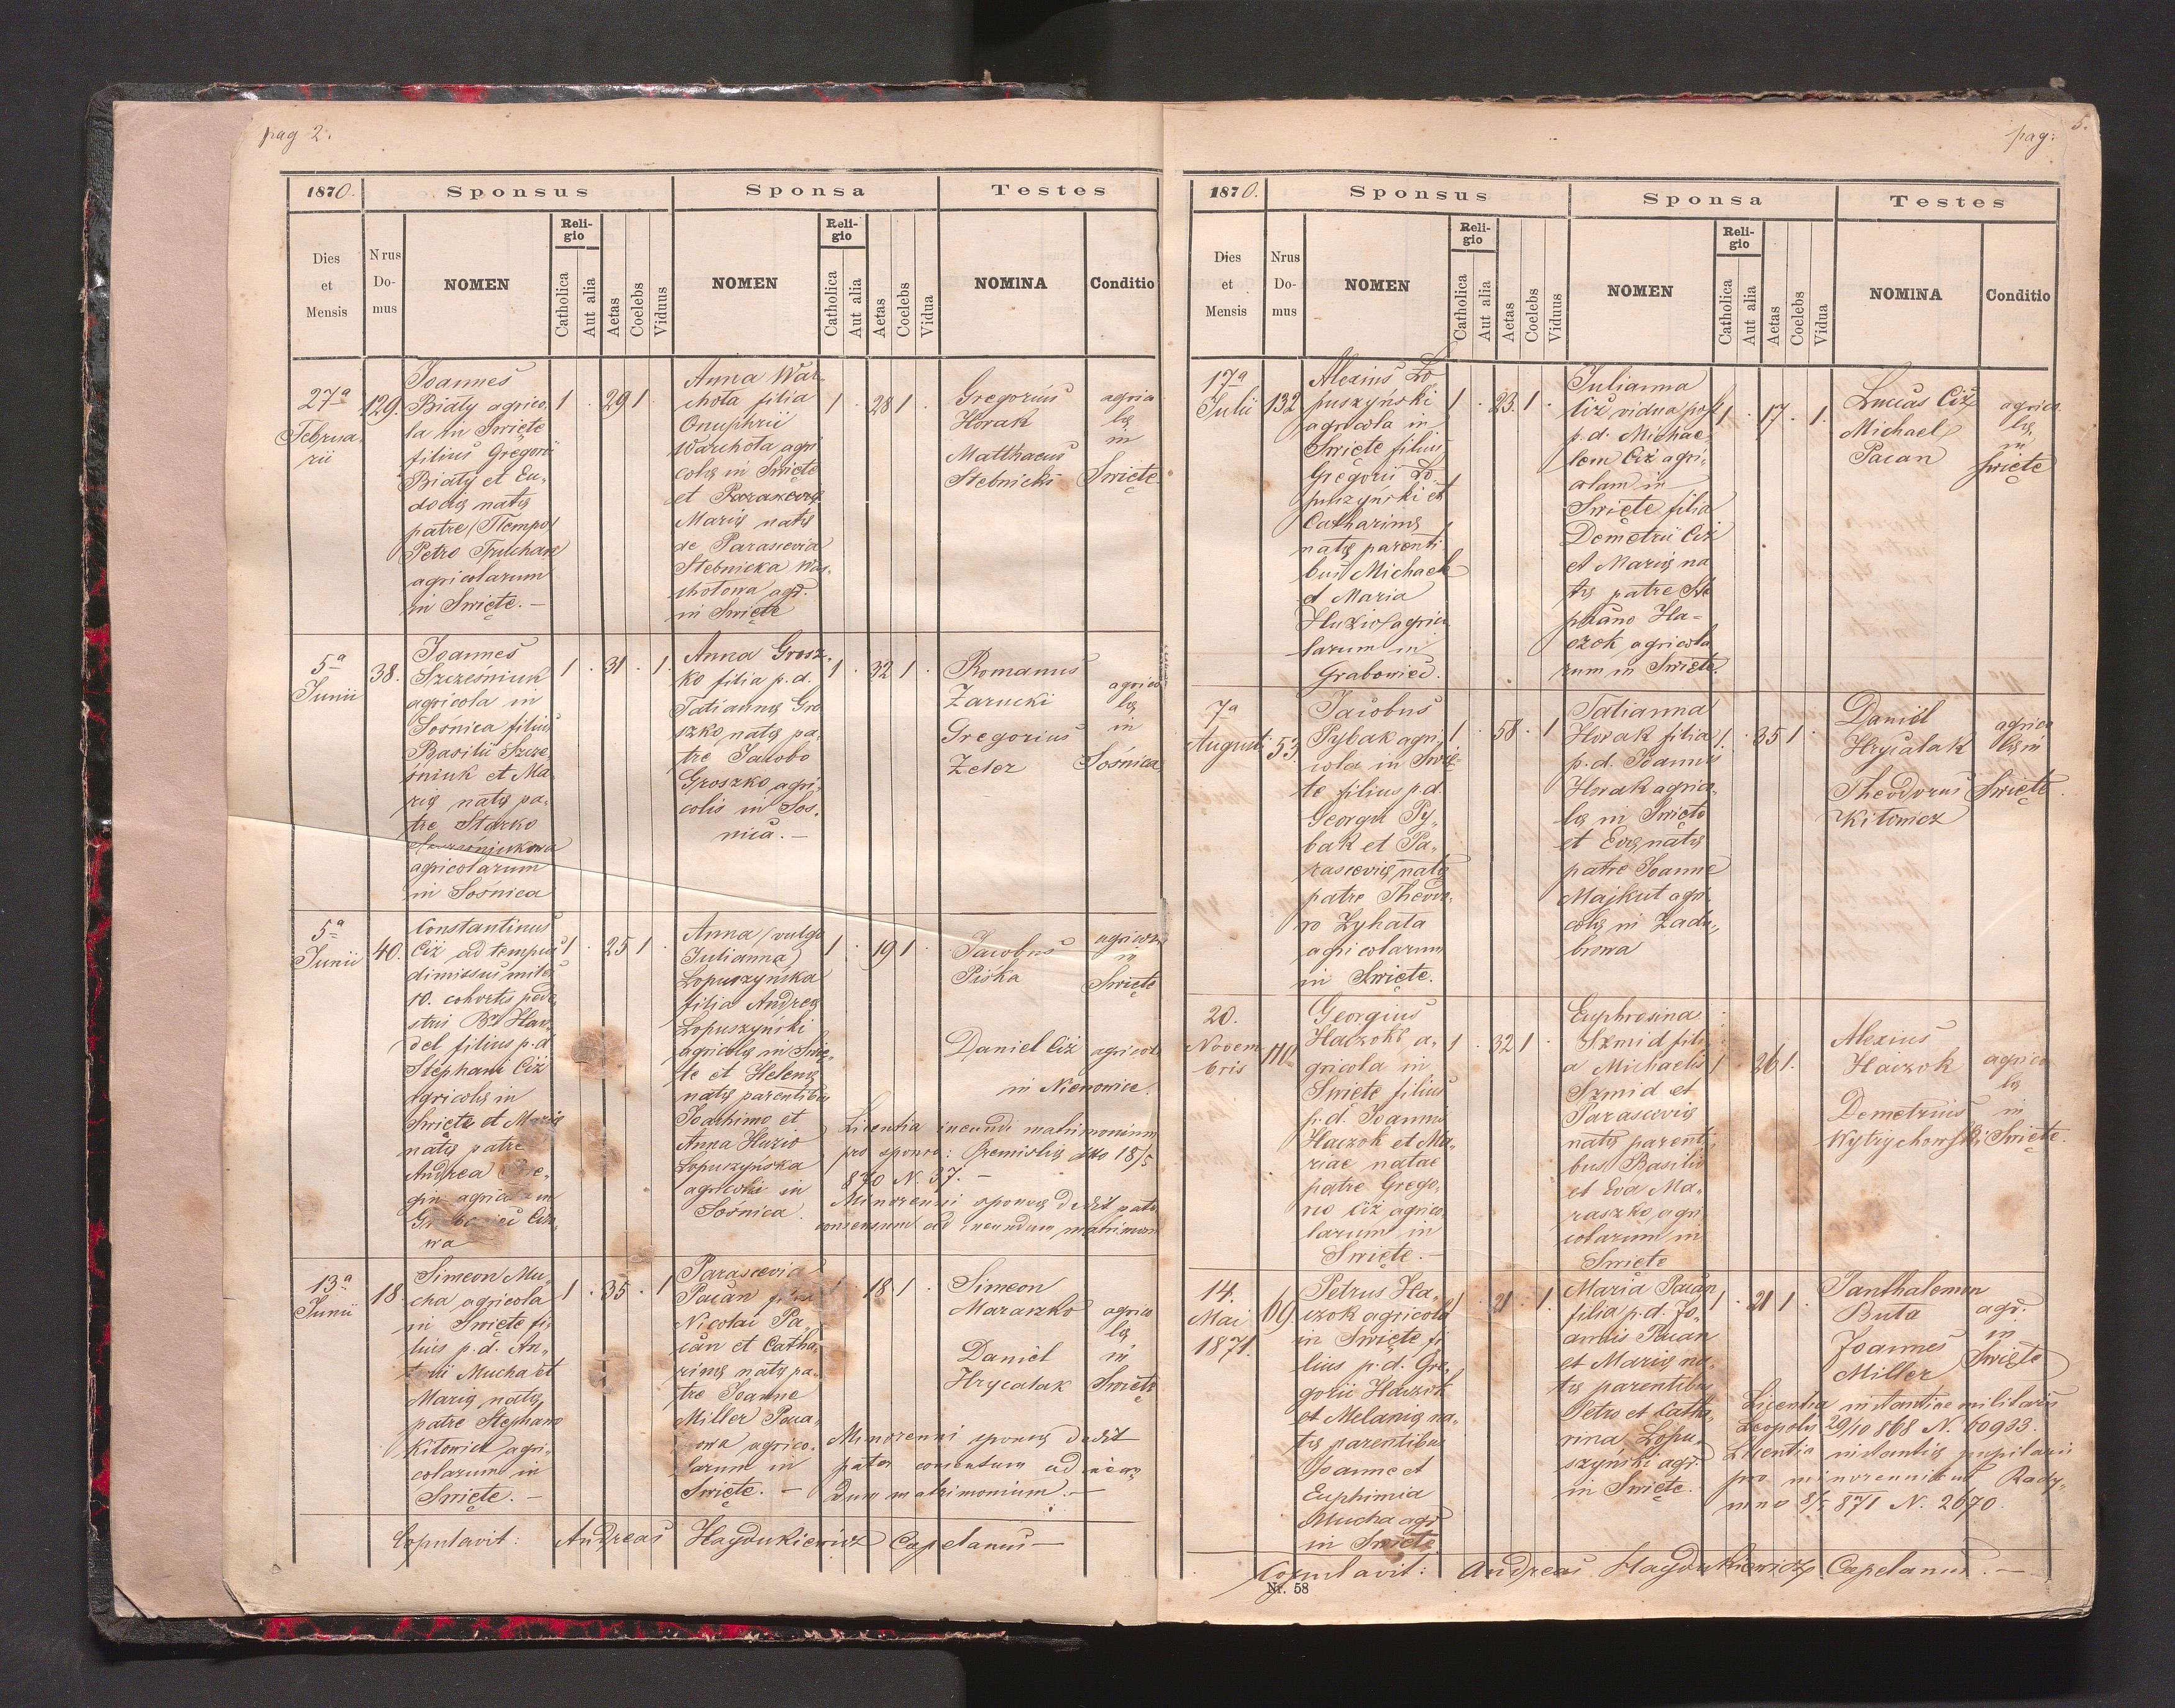 pag 2.
1870.
Sponsus
Sponsa
Testes
Dies et Mensis
Nrus Domus
NOMEN
Religio
Catholica
Aut alia
Aetas
Coelebs
Viduus
NOMEN
Religio
Catholica
Aut alia
Aetas
Coelebs
Vidua
NOMINA
Conditio
27a
Februa
rii
129.
Joannes
Biały agrico
la in Swięte
filius Gregorii
Biały et Eu,
docię natę
patre
Petro
agricolarum
in Swięte. —
1 . 29 1 .
Anna War,
chota filia
Onuphrii
Warchota agri
colę in Swięte
et Parascevię
Marię natę
de Parascevia
Stebnicka War,
chotowa agr.
in Swięte
1 . 28 1 .
Gregorius
Horak
Matthaeus
Stebnicki
agrico
lę
in
Swięte
5a
Junii
38.
Joannes
Szcześniuk
agricola in
Sośnica filius
Basilii Szcze,
śniuk et Ma
rię natę pa,
tre Starko
agricolarum
in Sośnica
1 . 31 . 1.
Anna Grosz,
ko filia p. d.
Tatiannę Gro
szko natę pa,
tre Jacobo
Groszko agri,
colis in Sos,
nica. —
1 . 32 1 .
Romanus
Zarucki
Gregorius
Zeler
agrico
lę
in
Sośnica
5a
Junii
40.
Constantinus
Ciż ad tempus
dimissus miles
10. cohortis pede,
stris Br Han,
del filius p. d
Stephani Ciż
agricolę in
Swięte et Marię
natę patre
Andrea
gin
wa
1 . 25 1 .
Anna (vulgo
Julianna)
Łopuszyńska
filia Andreę
Łopuszyński
agricolę in Swię,
te et Helenę
natę parentibus
Joachimo et
Anna Huzio
Łopuszyńska
agricolis in
Sośnica.
1 . 19 1 .
Jacobus
Piska
agricola
in
Swięte
Daniel Ciż agricola
in Nienowice
Licentia ineundi matrimonium
pro sponso: Premislię dto 18/5
870 N. 37. —
Minorenni sponsę dedit pater
consensum ad ineundum matrimon
13a
Junii
18.
Simeon Mu,
cha agricola
in Swięte fi,
lius p. d. An,
Mucha et
Marię natę
patre Stephano
Kitowicz agri,
colarum in
Swięte. —
1 . 35 . 1
Parascevia
Pacan filia
Nicolai Pa,
can et Catha,
rinę natę pa,
tre Joanne
Miller Paca,
owa agrico,
larum in
Swięte. —
1 . 18 1 .
Simeon
Maraszko
Daniel
Hrycalak
agrico
lę
in
Swięte
Minorenni sponsę dedit
pater consensum ad ineun,
dum matrimonium. —
Copulavit: Andreas Haydukiewicz Capelanus —
pag: 5.
1870.
Sponsus
Sponsa
Testes
Dies et Mensis
Nrus Domus
NOMEN
Religio
Catholica
Aut alia
Aetas
Coelebs
Viduus
NOMEN
Religio
Catholica
Aut alia
Aetas
Coelebs
Vidua
NOMINA
Conditio
17a
Julii
132
Alexius Ło
puszyński
agricola in
Swięte filius
Gregorii Ło,
puszyński et
Catharinę
natę parenti
bus Michaele
et Maria
Huzio agrico
larum in
Grabowiec.
1 . 23. 1 .
Julianna
Ciż vidua post
p. d. Michae,
lem Ciż agri,
colam in
Swięte filia
Demetrii Ciż
et Marię na
tę patre Ste
phano Ha=
czok agricola
rum in Swięte.
1 . 17 . 1.
Lucas Ciż
Michael
Pacan
agrico
lę
in
Swięte
7a
Augusti
53.
Jacobus
Pybak agri,
cola in Swię=
te filius p. d.
Georgii Py,
bak et Pa,
rascevię natę
patre Theodo,
ro Zyhała
agricolarum
in Swięte.
1 . 58 . 1
Tatianna
Horak filia
p. d. Joannis
Horak agrico,
lę in Swięte
et Evę natę
patre Joanne
Majkut agri
colę in Zadą,
browa
1 . 35 1 .
Daniel
Hrycalak
Theodorus
Kitowicz
agrico
lę in
Swięte.
20.
Novem
bris
Georgius
Haczok a,
gricola in
Swięte filius
p. d. Joannis
Haczok et Ma,
riae natae
patre Grego,
rio Ciż agrico
larum in
Swięte. —
1 . 32 1 .
Euphrosina
Szmid fili,
a Michaelis
Szmid et
Parascevię
natę parenti,
bus Basilio
et Eva Ma,
raszko agri
colarum in
Swięte
1 . 26 1.
Alexius
Haczok
Demetrius
Wytrychowski
agrico
lę
in
Swięte.
14.
Mai
1871.
69
Petrus Ha,
czok agricola
in Swięte fi
lius p. d. Gre,
gorii Haczok
et Melanię na,
tę parentibus
Joanne et
Euphimia
Mucha agr
in Swięte
1 . 21 . 1.
Maria Pacan
filia p. d. Jo,
annis Pacan
et Marię na,
tę parentibus
Petro et Catha,
rina Łopu,
szyński agr.
in Swięte.
1 . 21 1 .
Panthalemon
Buta
Joannes
Miller
agr.
in
Swięte
Licentia instantiae militaris
Leopolis 29/10 868 N. 60933.
Licentia instantię pupilaris
pro minorennibus Rady,
mno 8/5 871 N. 2670.
Copulavit: Andreas Haydukiewicz Capelanus. —
Nr. 58